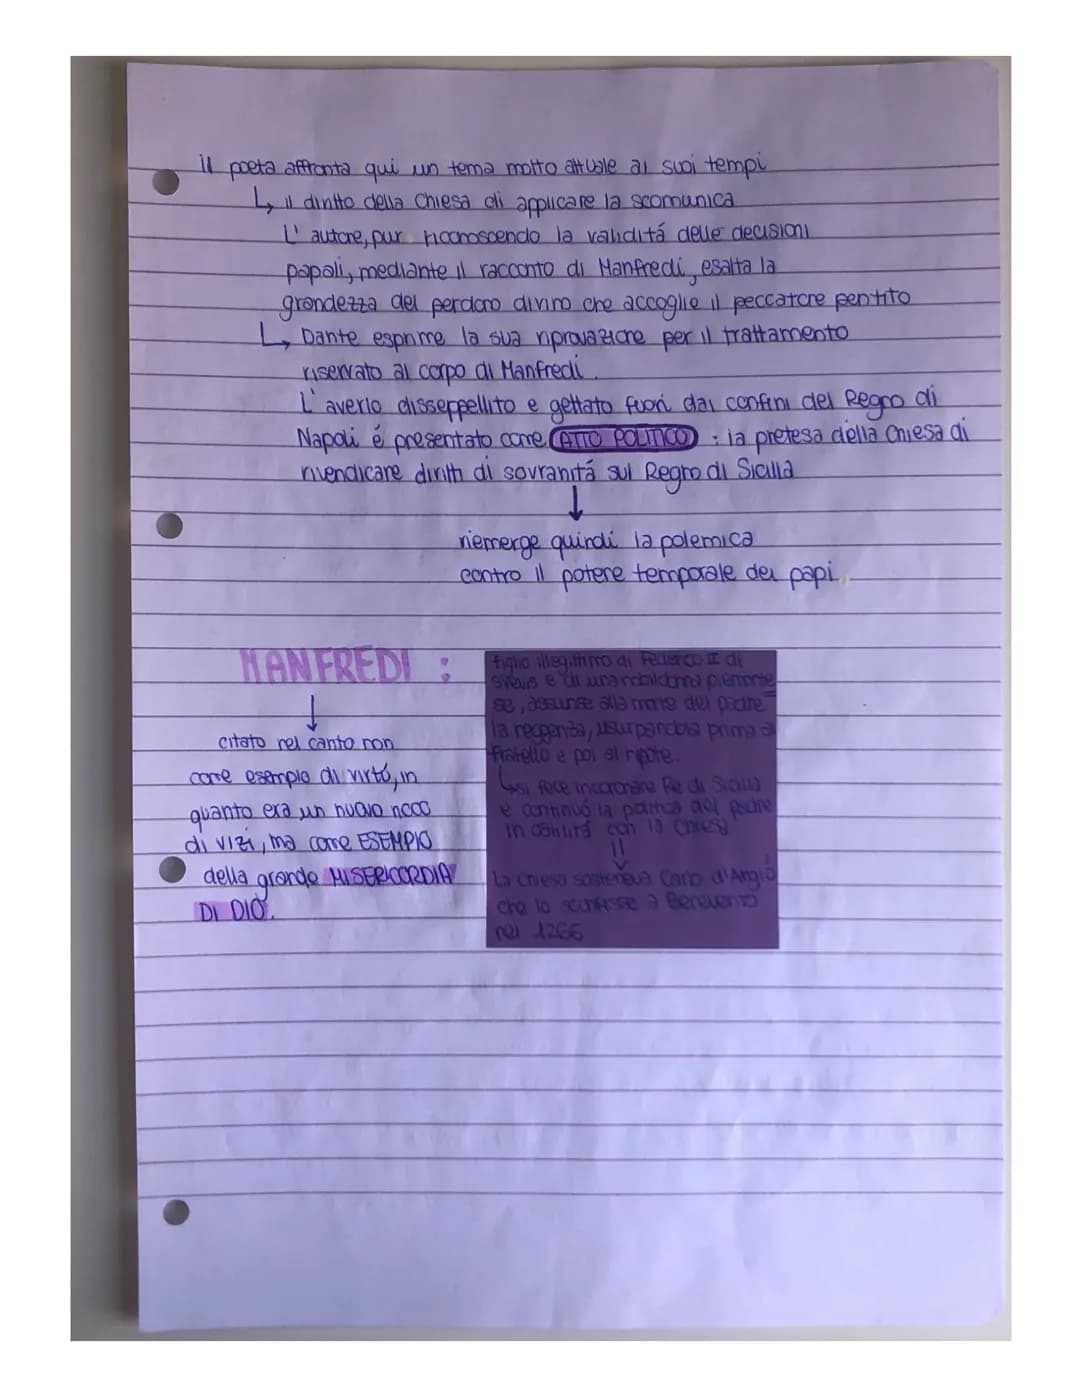 il poeta affronta qui un tema molto attuale ai suoi tempi
↳ il diritto della Chiesa di applicare la scomunica
L'autore, pur riconoscendo la validitá delle decisioni
papali, mediante il racconto di Manfredi, esalta la
grandezza del perdono divino che accoglie il peccatore pentito
↳ Dante esprime la sua riprovazione per il trattamento
riservato al corpo di Manfredi.
L'averlo disseppellito e gettato fuori dai confini del Regno di
Napoli é presentato come ATTO POLITICO : la pretesa della Chiesa di
rivendicare diritti di sovranitá sul Regno di Sicilia
↓
riemerge quindi la polemica
contro il potere temporale dei papi.
MANFREDI :
↓
citato nel canto non
come esempio di virtú, in
quanto era un nuovo ricco
di vizi, ma come ESEMPIO
della grande MISERICORDIA
DI DIO.
figlio illegittimo di Federico II di
Svevia e di una nobildonna piemonte
se, assunse alla morte del padre
la reggenza, usurpandola prima al
fratello e poi al nipote.
↳ si fece incoronare Re di Sicilia
e continuó la politica del padre
in contrasto con la Chiesa
⇓
La Chiesa sosteneva Carlo d'Angió
che lo sconfisse a Benevento
nel 1266